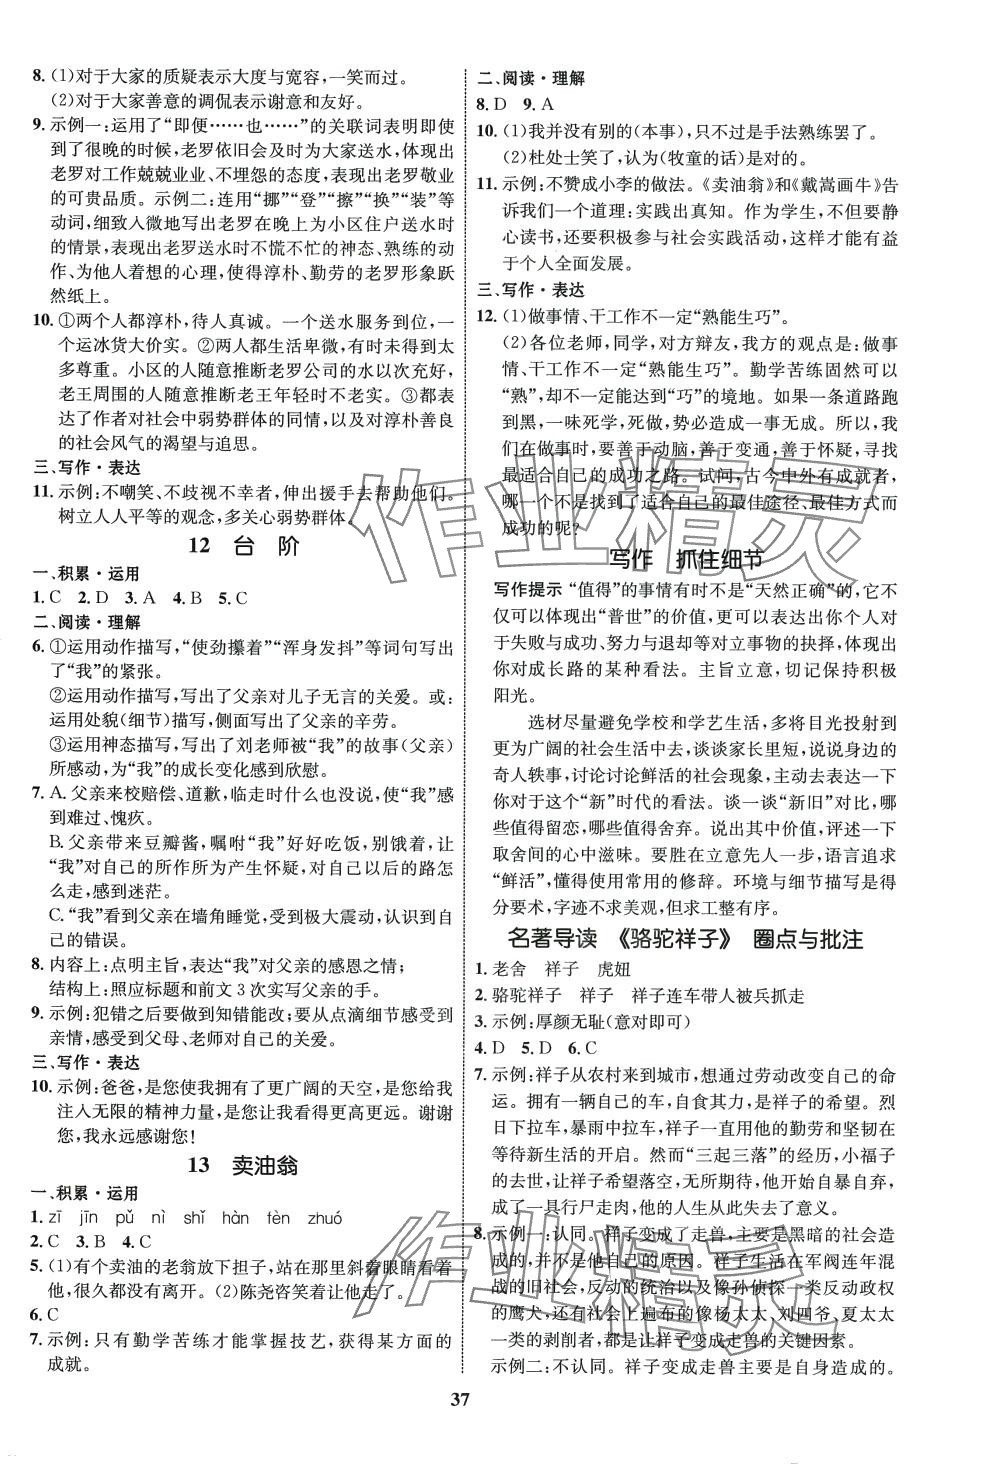 8. (1)对于大家的质疑表示大度与宽容,一笑而过。
(2)对于大家善意的调侃表示谢意和友好。
9. 示例一:运用了“即便……也……”的关联词表明即使
到了很晚的时候,老罗依旧会及时为大家送水,体现出
老罗对工作兢兢业业、不埋怨的态度,表现出老罗敬业
的可贵品质。示例二:连用“挪”“登”“擦”“换”“装”等
动词,细致入微地写出老罗在晚上为小区住户送水时
的情景,表现出老罗送水时不慌不忙的神态、熟练的动
作、为他人着想的心理,使得淳朴、勤劳的老罗形象跃
然纸上。
10. ①两个人都淳朴,待人真诚。一个送水服务到位,一
个运冰货大价实。②两人都生活卑微,都不能得到太
多尊重。小区的人随意推断老罗公司的水以次充好,
老王周围的人随意推断老王年轻时不老实。③都表
达了作者对社会中弱势群体的同情,以及对淳朴善良
的社会风气的渴望与追思。
三、写作·表达
11. 示例:不嘲笑、不歧视不幸者,伸出援手去帮助他们。
树立人人平等的观念,多关心弱势群体。
12 台 阶
一、积累·运用
1. C 2. D 3. A 4. B 5. C
二、阅读·理解
6. ①运用动作描写,“使劲攥着”“浑身发抖”等词句写出
了“我”的紧张。
②运用动作描写,写出了父亲对儿子无言的关爱。或:
运用处貌(细节)描写,侧面写出了父亲的辛劳。
③运用神态描写,写出了刘老师被“我”的故事(父亲)
所感动,为“我”的成长变化感到欣慰。
7. A. 父亲来校赔偿、道歉,临走时什么也没说,使“我”
感到难过、愧疚。
B. 父亲带来豆瓣酱,嘱咐“我”好好吃饭,别饿着,让
“我”对自己的所作所为产生怀疑,对自己以后的路怎
么走,感到迷茫。
C. “我”看到父亲在墙角睡觉,受到极大震动,认识到自
己的错误。
8. 内容上:点明主旨,表达“我”对父亲的感恩之情;
结构上:照应标题和前文3次实写父亲的手。
9. 示例:犯错之后要做到知错能改;要从点滴细节感受到
亲情,感受到父母、老师对自己的关爱。
三、写作·表达
10. 示例:爸爸,是您使我拥有了更广阔的天空,是您给我
注入无限的精神力量,是您让我看得更高更远。谢谢
您,我永远感谢您!
13 卖油翁
一、积累·运用
1. zī jīn pǔ nì shǐ hàn tèn zhuó
2. C 3. B 4. C
5. (1)有个卖油的老翁放下担子,站在那里斜着眼睛看着
他,很久都没有离开。(2)陈尧咨笑着让他走了。
6. C
7. 示例:只有勤学苦练才能掌握技艺,获得某方面的
成就。
二、阅读·理解
8. D 9. A
10. (1)我并没有别的(本事),只不过是手法熟练罢了。
(2)杜处士笑了,认为(牧童的话)是对的。
11. 示例:不赞成小李的做法。《卖油翁》和《戴嵩画牛》告
诉我们一个道理:实践出真知。作为学生,不但要静
心读书,还要积极参与社会实践活动,这样才能有益
于个人全面发展。
三、写作·表达
12. (1)做事情、干工作不一定“熟能生巧”。
(2)各位老师,同学,对方辩友,我方的观点是:做事
情、干工作不一定“熟能生巧”。勤学苦练固然可以
“熟”,却不一定能达到“巧”的境地。如果一条道路跑
到黑,一味死学,死做,势必造成一事无成。所以,我
们在做事时,要善于动脑,善于变通,善于怀疑,寻求
最适合自己的成功之路。试问,古今中外有成就者,
哪一个不是找到了适合自己的最佳途径、最佳方式而
成功的呢?
写作 抓住细节
写作提示 “值得”的事情有时不是“天然正确”的,它不
仅可以体现出“普世”的价值,更多地体现出你个人对
于失败与成功、努力与退却等对立事物的抉择,体现出
你对成长路的某种看法。主旨立意,切记保持积极
阳光。
选材尽量避免学校和学艺生活,多将目光投射到
更为广阔的社会生活中去,谈谈家长里短,说说身边的
奇人轶事,讨论讨论鲜活的社会现象,主动去表达一下
你对这个“新”时代的看法。谈一谈“新旧”对比,哪
些值得留恋,哪些值得舍弃。说出其中价值,评述一下
取舍间的心中滋味。要胜在立意先人一步,语言追求
“鲜活”,懂得使用常用的修辞。环境与细节描写是得
分要术,字迹不求美观,但求工整有序。
名著导读 《骆驼祥子》 圈点与批注
1. 老舍 祥子 虎妞
2. 骆驼祥子 祥子 祥子连车带人被兵抓走
3. 示例:厚颜无耻(意对即可)
4. D 5. D 6. C
7. 示例:祥子从农村来到城市,想通过劳动改变自己的命
运。拥有一辆自己的车,自食其力,是祥子的希望。烈
日下拉车,暴雨中拉车,祥子一直用他的勤劳和坚韧在
等待新生活的开启。然而“三起三落”的经历,小福子
的去世,使祥子希望落空,无所依傍,他开始自暴自弃,
成了一具行尸走肉,他的人生从此失去了意义。
8. 示例一:认同。祥子变成了走兽,主要是黑暗的社会造
成的,并不是他自己的原因。祥子生活在军阀连年混
战的旧社会,反动的统治以及像孙侦探一类反动政权
的鹰犬,还有社会上遍布的像杨太太、刘四爷、夏太太
一类的剥削者,都是让祥子变成走兽的关键因素。
示例二:不认同。祥子变成走兽主要是自身造成的。
37
作业精灵
作业精灵